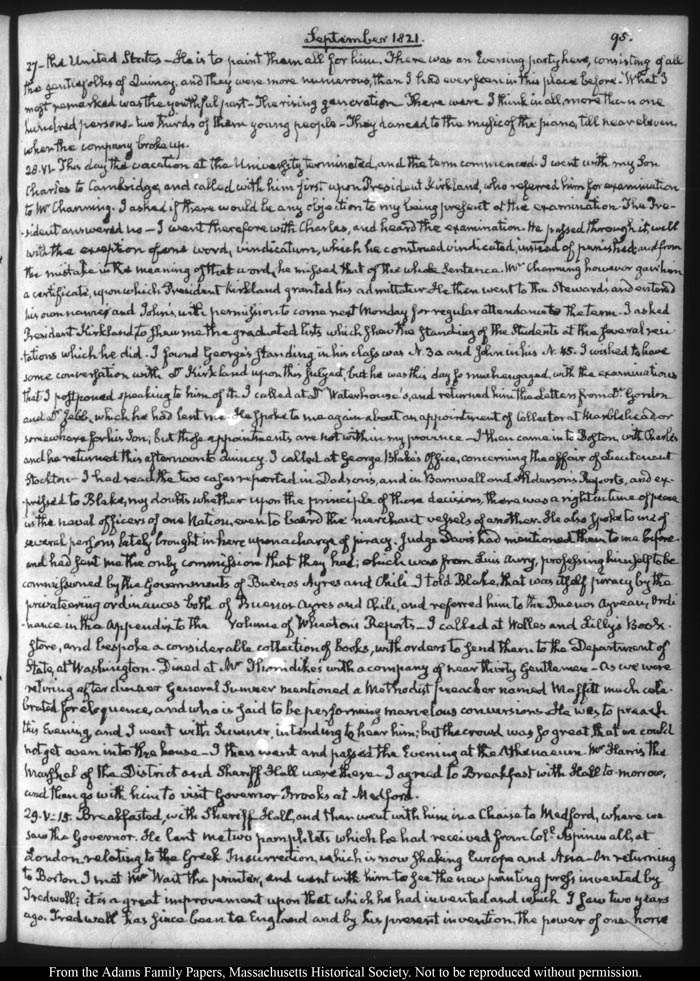 September 1821. 95.
27– the United States – He is to paint them all for him. There was an Evening party here, consisting of all
the gentlefolks of Quincy, and they were more numerous, than I had ever seen in this place before – What I
most remarked was the youthful part – The rising generation. There were I think in all, more than one
hundred persons – two thirds of them young people – They danced to the music of the piano, till near eleven,
when the company broke up.
28. VI. This day the vacation at the University terminated, and the term commenced. I went with my Son
Charles to Cambridge, and called with him first upon President Kirkland, who referred him for examination
to Mr Channing. I asked if there would be any objection to my being present at the examination. The Pre-
sident answered no – I went therefore with Charles, and heard the examination. He passed through it well
with the exception of one word, vindicatum, which he construed vindicated, instead of punished; and from
the mistake in the meaning of that word, he missed that of the whole Sentence. Mr Channing however gave him
a certificate, upon which President Kirkland granted his admittatur. He then went to the Stewards and entered
his own name and John's, with permission to come next Monday for regular attendance to the term. I asked
President Kirkland to shew me the graduated lists which shew the standing of the Students at the several reci-
tations which he did. I found George's standing in his class was N. 30 and John in his N. 45. I wished to have
some conversation with Dr Kirkland upon this subject, but he was this day so much engaged, with the examinations
that I postponed speaking to him of it. I called at Dr Waterhouse's, and returned him the Letters from Dr Gordon
and Dr Jebb, which he had lent me. He spoke to me again about an appointment of Collector at Marblehead or
somewhere for his Son; but those appointments are not within my province – I then came into Boston, with Charles
and he returned this afternoon to Quincy. I called at George Blake's Office, concerning the affair of Lieutenant
Stockton – I had read the two cases reported in Dodson's, and in Barnwall and Alderson's Reports, and ex-
pressed to Blake, my doubts whether upon the principle of those decisions, there was a right in time of peace
in the naval officers of one Nation, even to board the merchant vessels of another. He also spoke to me of
several persons lately brought in here upon a charge of piracy. Judge Davis had mentioned them to me before
and had sent me the only commission that they had; which was from Luis Aury, professing himself to be
commissioned by the Governments of Buenos Ayres and Chili. I told Blake, that was itself piracy by the
privateering ordinances both of Buenos Ayres and Chili, and referred him to the Buenos Ayrean, Ordi-
nance in the Appendix to the Volume of Wheaton's Reports – I called at Welles and Lilly's Book
store, and bespoke a considerable collection of Books, with orders to send them to the Department of
State, at Washington. Dined at Mr Thorndike's with a company of near thirty Gentlemen – As we were
retiring after dinner General Sumner mentioned a Methodist preacher named Maffitt much cele-
brated for eloquence, and who is said to be performing marvelous conversions. He was to preach
this Evening, and I went with Sumner, intending to hear him; but the crowd was so great that we could
not get even into the house – I then went and passed the Evening at the Athenaeum. Mr Harris, the
Marshal of the District and Sheriff Hall were there. I agreed to Breakfast with Hall to-morrow,
and then go with him to visit Governor Brooks at Medford.
29. V: 15. Breakfasted, with Sheriff Hall, and then went with him in a Chaise to Medford, where we
saw the Governor. He lent me two pamphlets which he had received from Coll. Aspinwall, at
London, relating to the Greek Insurrection, which is now shaking Europe and Asia – On returning
to Boston I met Mr Wait the printer, and went with him to see the new printing press invented by
Tredwell; it is a great improvement upon that which he had invented and which I saw two years
ago. Tredwell has since been to England and by his present invention, the power of one horse
From the Adams Family Papers, Massachusetts Historical Society. Not to be reproduced without permission.